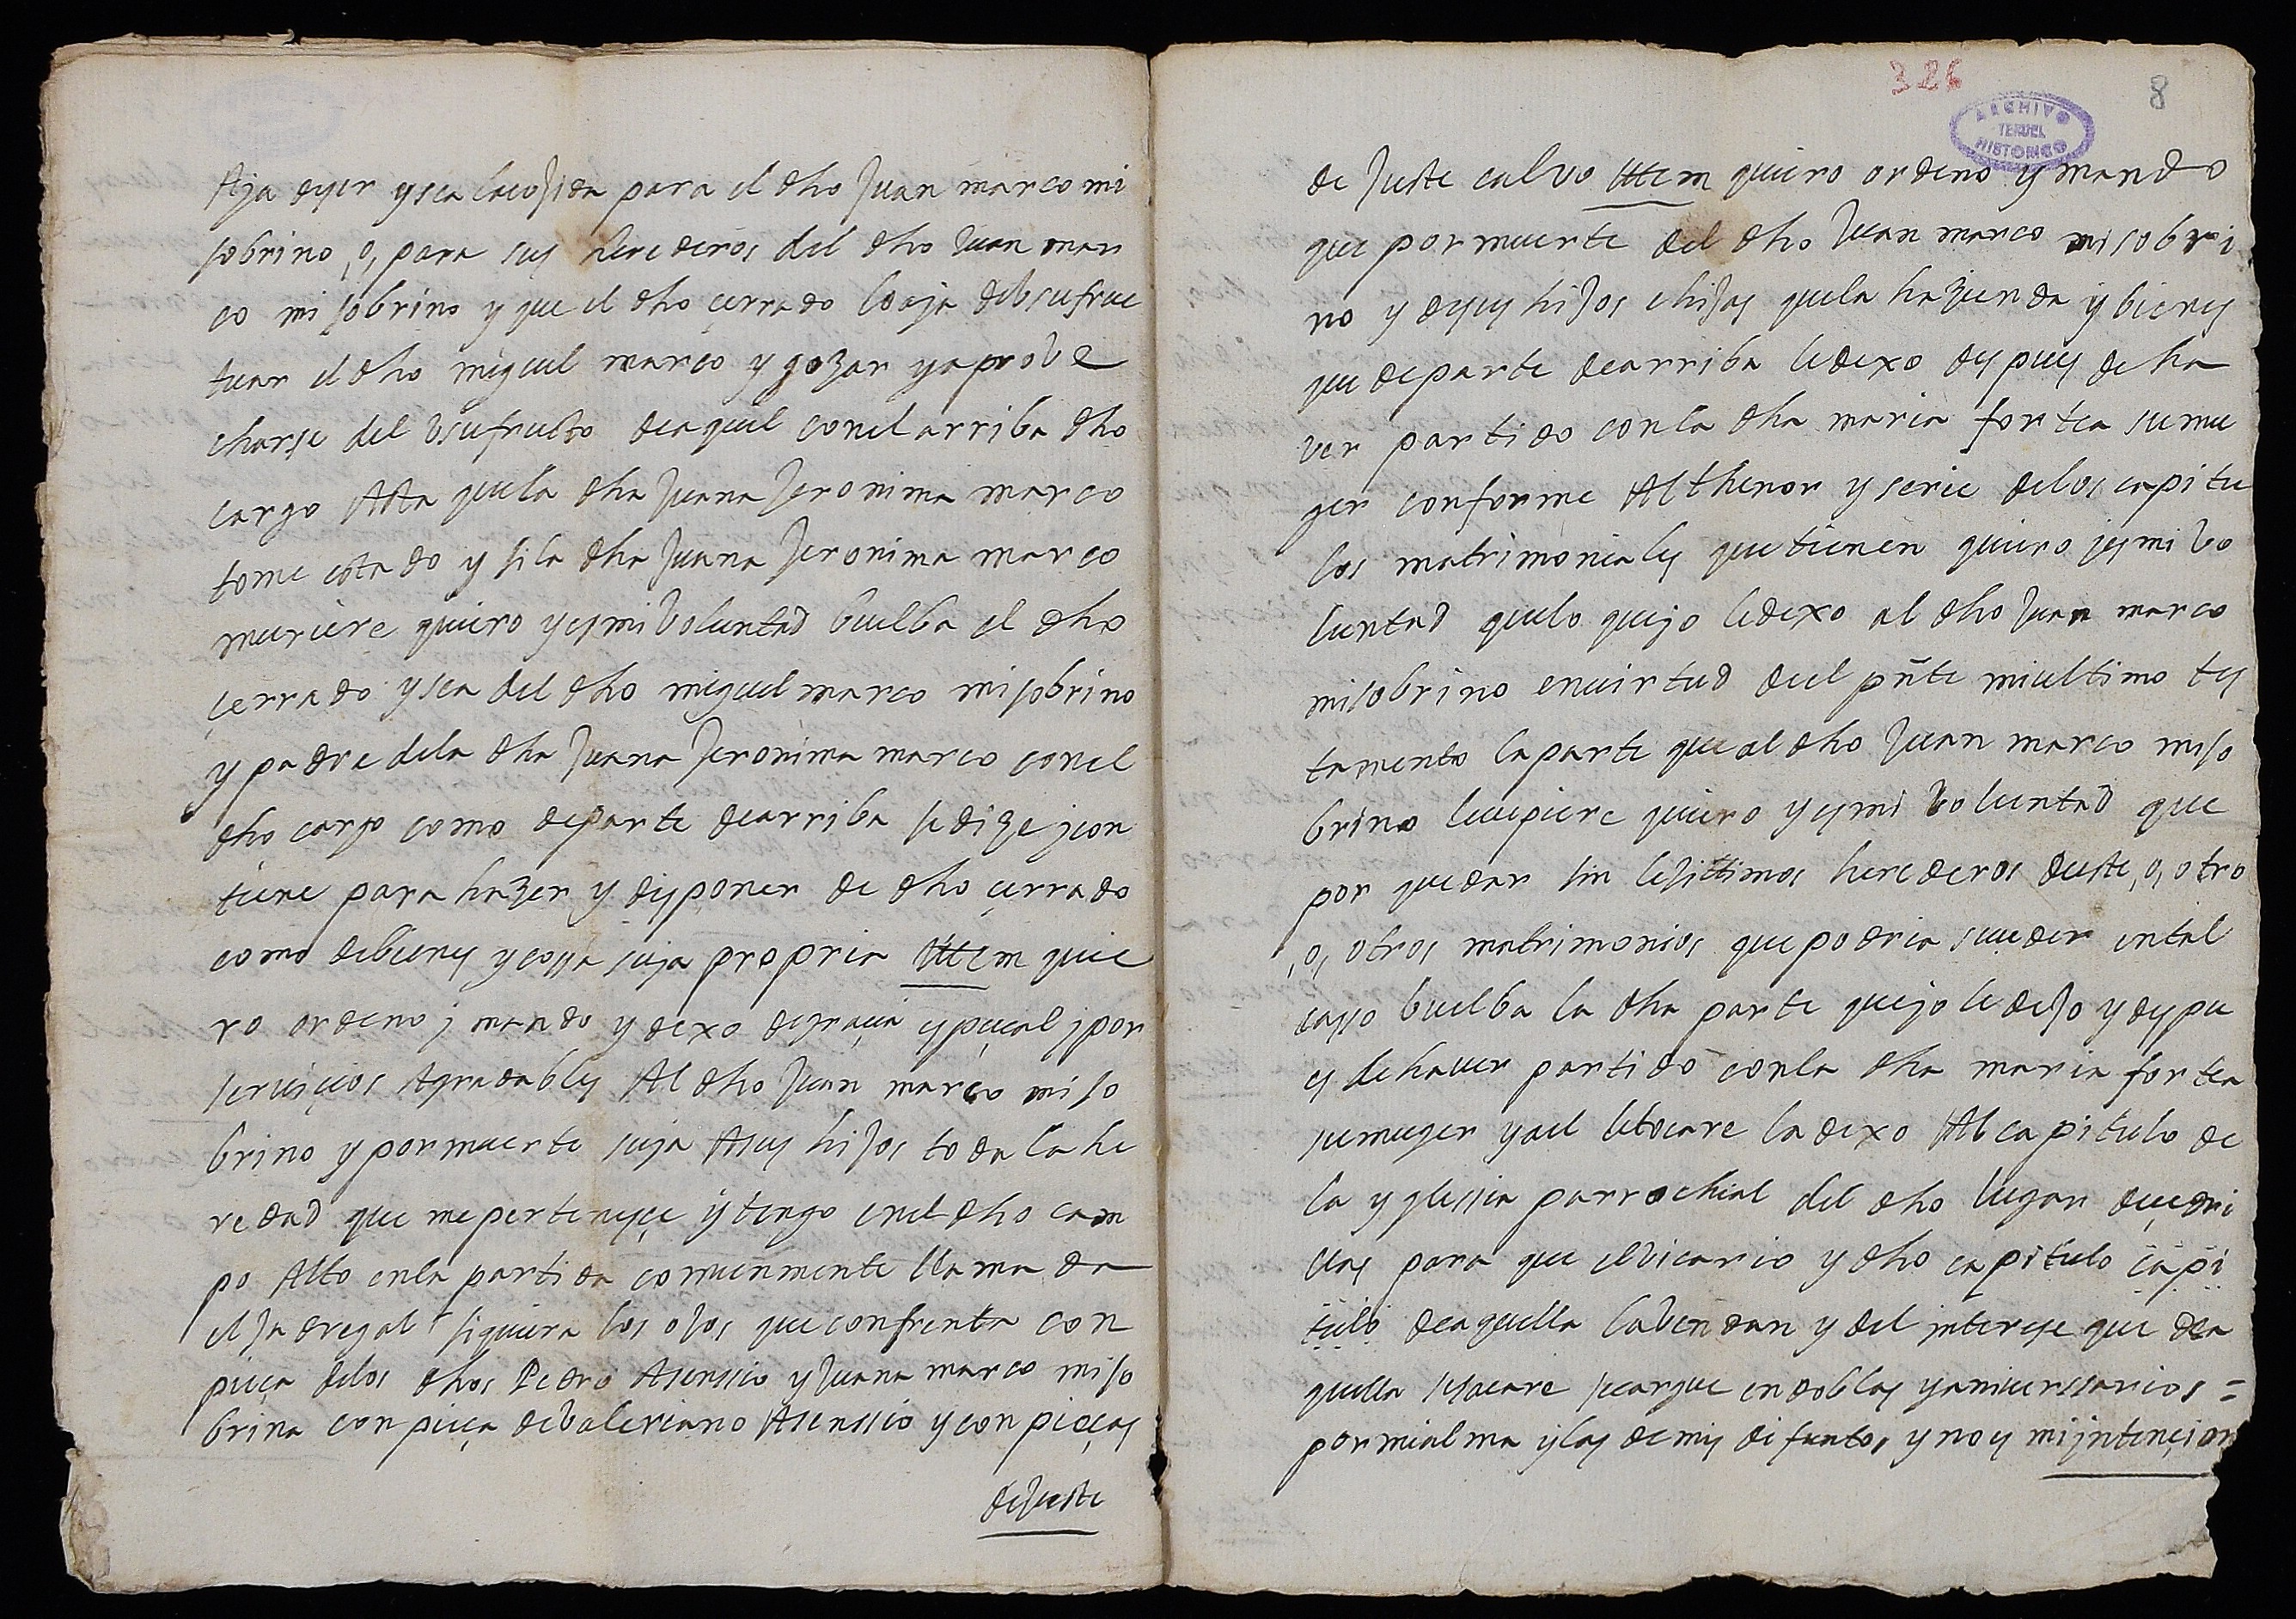 Aja deser y sea la cojida para el dho Juan marco mi
sobrino ,o, para sus herederos del dho Juan mar
co mi sobrino y que el dho çerrado lo aja de usufruc
tuar el dho miguel marco y gozar y aprove
charse del Usufructo de aquel con el arriba dho
cargo Asta que la dha Juana Jeronima marco
tome estado y si la dha Juana Jeronima marco
muriere quiero y es mi Voluntad buelba el dho
çerrado y sea del dho miguel marco mi sobrino
y padre de la dha Juana Jeronima marco con el
dho cargo como de parte de arriba se dize j con
tiene para hazer y disponer de dho çerrado
como de bienes y cossa suja propria Ittem quie
ro ordeno j mando y dexo de graçia espeçial j por
seruiçios Agradables Al dho Juan marco mi so
brino y por muerte suja A sus hijos toda la he
redad que me pertenesçe y tengo en el dho cam
po Alto en la partida comunmente llamada
el Jadregal siquiera los ojos que confrenta con
pieça de los dhos Pedro Asenssio y Juana marco mi so
brina con pieça de Valeriano Asenssio y con pieças
de Juste
326
8
ARCHIVO
TERUEL
HISTORICO
de Juste calvo Ittem quiero ordeno y mando
que por muerte del dho Juan marco mi sobri
no y de sus hijos e hijas que la hazienda y bienes
que de parte de arriba le dexo despues de ha
ver partido con la dha maria fortea su mu
ger conforme Al thenor y serie de los capitu
los matrimoniales que tienen quiero j es mi vo
luntad que lo que jo le dexo al dho Juan marco
mi sobrino en uirtud del pñte mi ultimo tes
tamento la parte que al dho Juan marco mi so
brino le cupiere quiero y es mi voluntad que
por quedar sin lesittimos herederos deste ,o, otro
,o, otros matrimonios que podria suceder en tal
casso buelba la dha parte que jo le dejo y despu
es de hauer partido con la dha maria fortea
su muger y a el le tocare la dexo Al capitulo de
la yglessia parrochial del dho lugar de cedri
llas para que el vicario y dho capitulo capi
tulo de aquella la vendan y del interese que dea
quella se sacare se cargue en doblas y aniuerssarios =
por mi alma y las de mis difuntos y no es mi jntençion